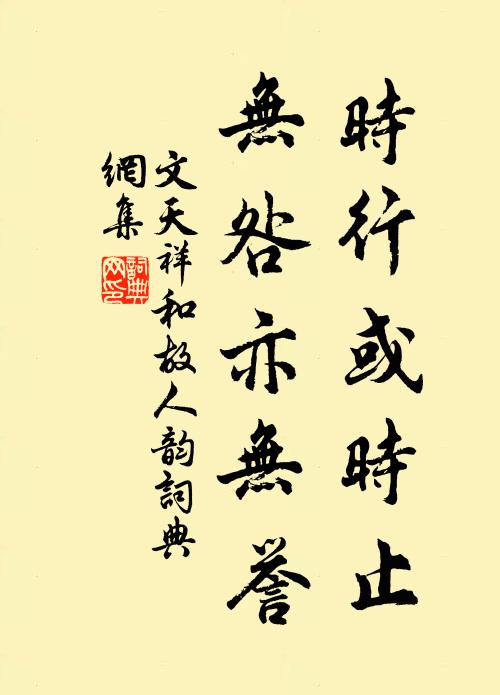 時行或時止
無咎亦無誉
文天祥和故人韵詞典
網集
詞典
网印